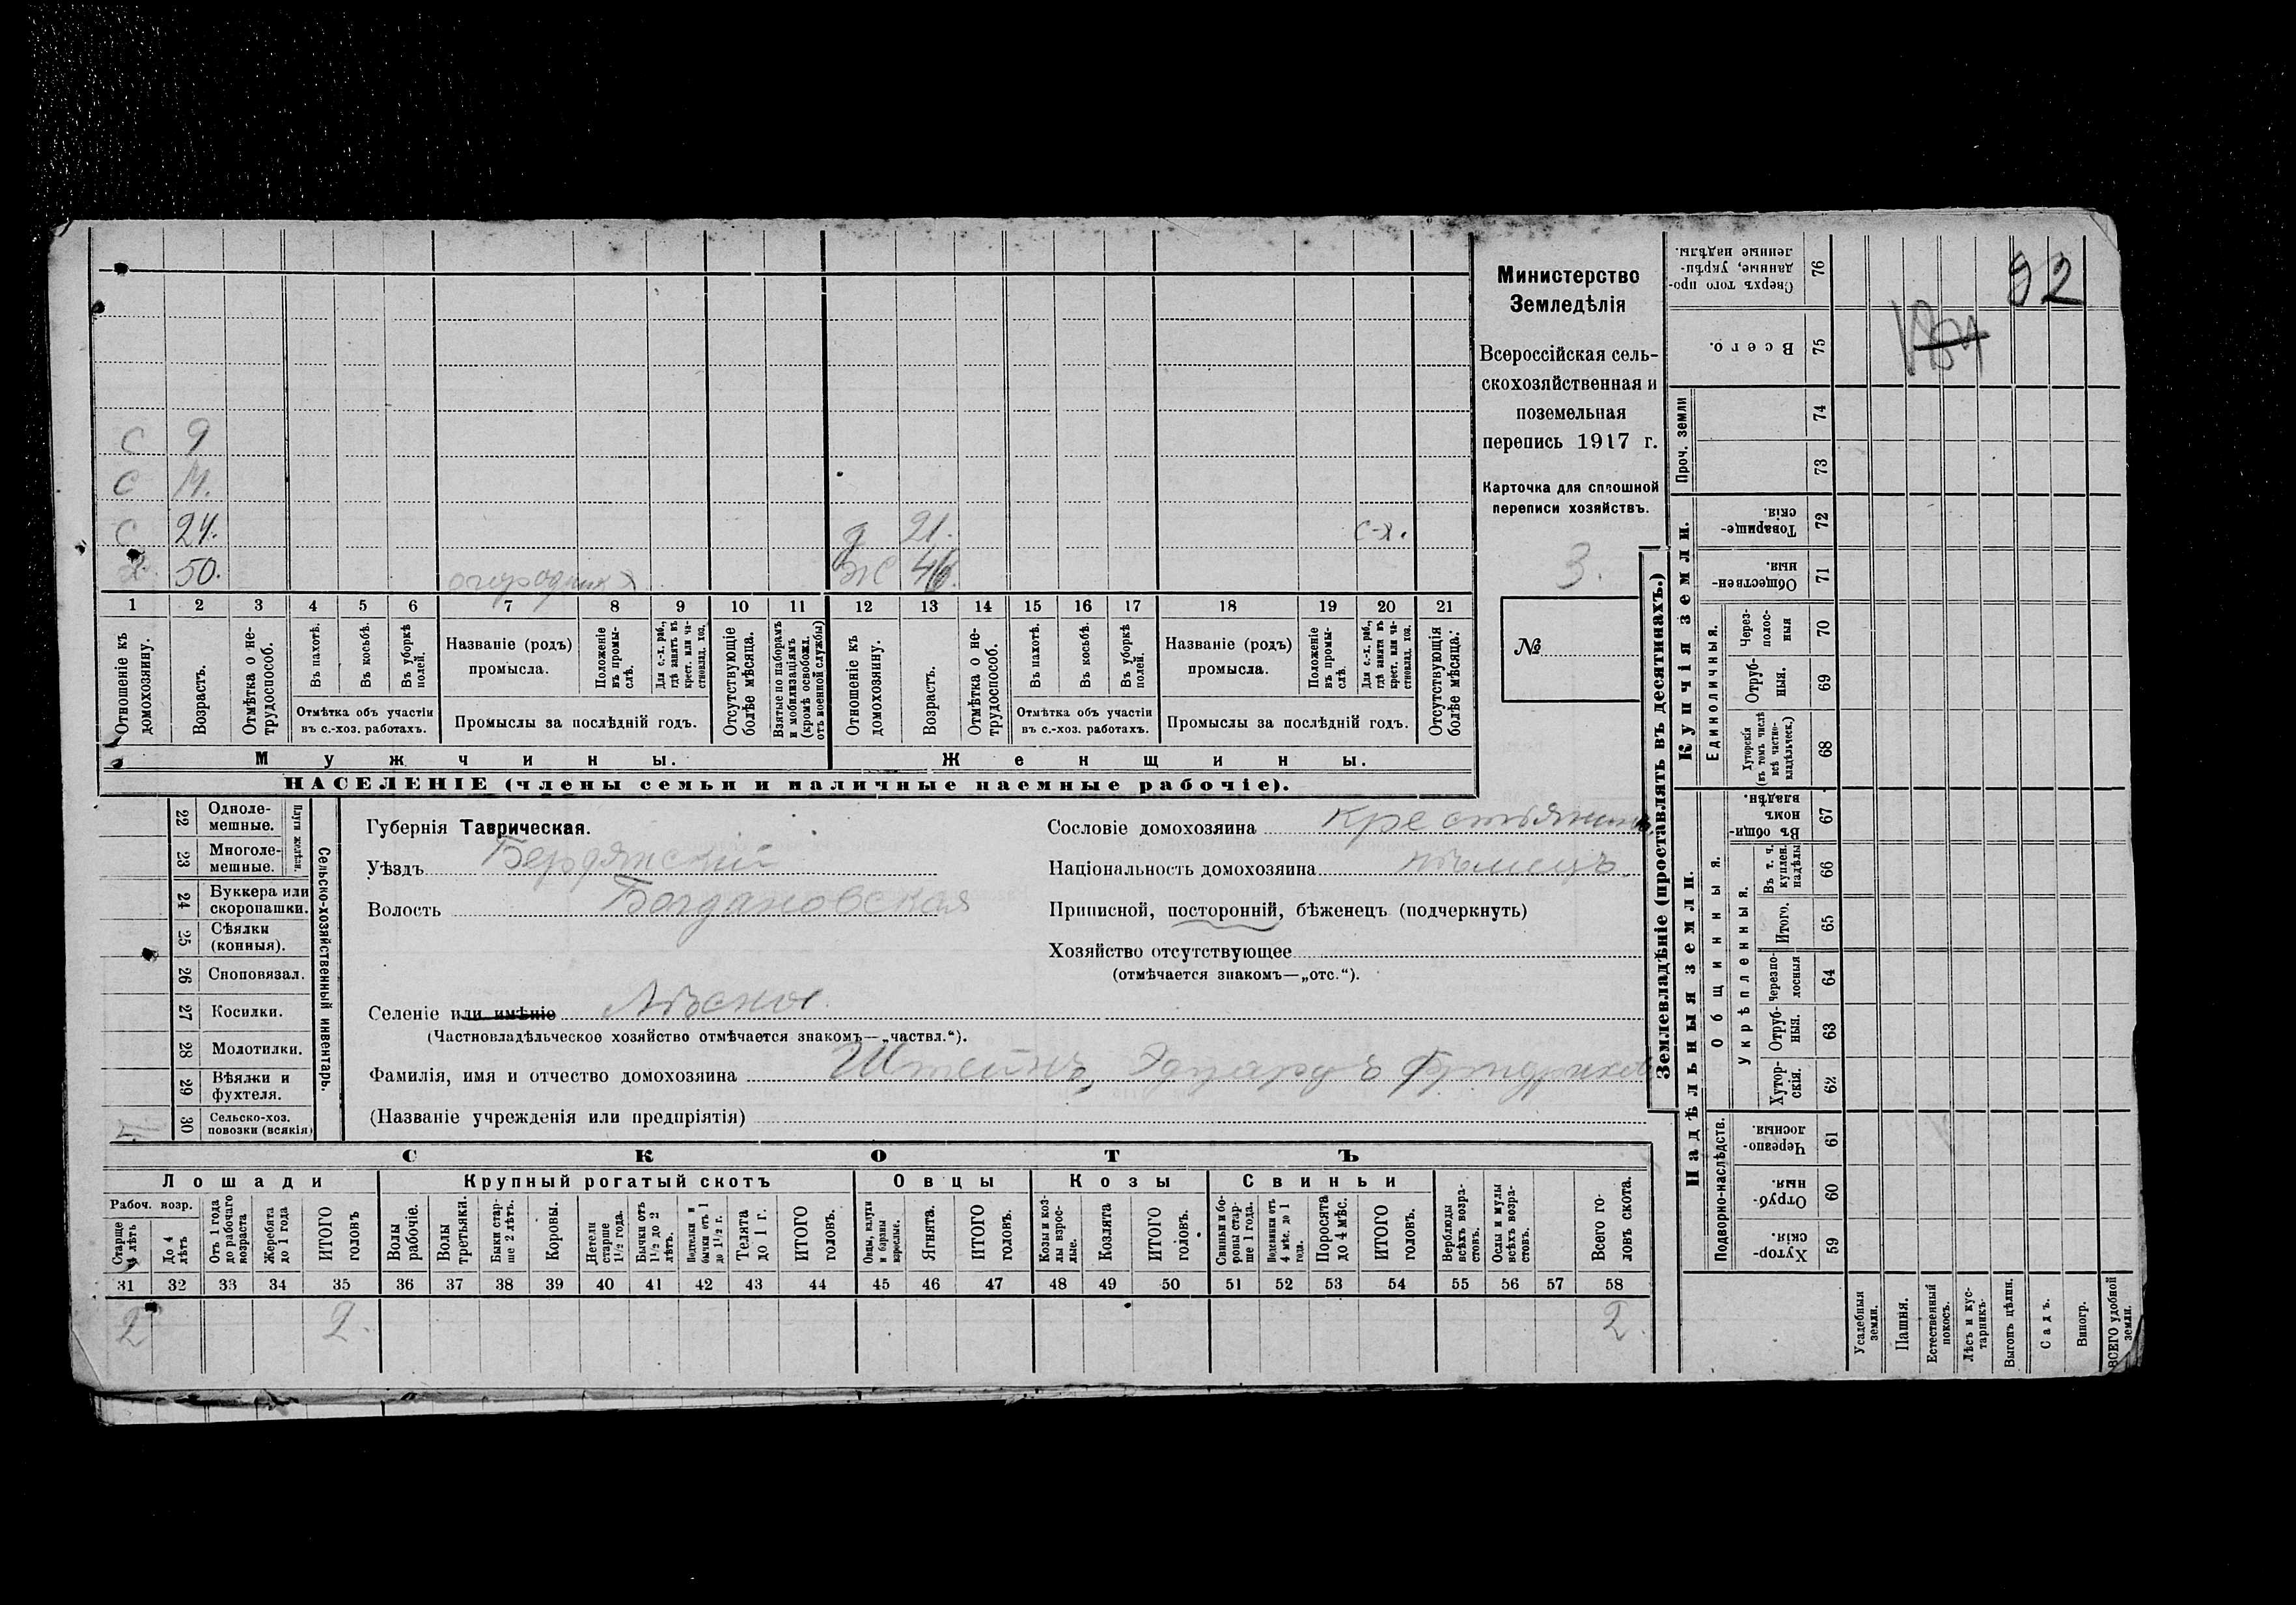 92
Министерство
Земледѣлія
Всероссійская сель-
скохозяйственная и
поземельная
перепись 1917 г.
Карточка для сплошной
переписи хозяйствъ.
3.
№
С 9
С
С 24. д 21. с-х.
50. огородник х Ж 46.
1 2 3 4 5 6 7 8 9 10 11 12 13 14 15 16 17 18 19 20 21
Отношеніе къ домохозяину.
Возрастъ.
Отмѣтка о не-трудоспособ.
Въ пахотѣ.
Въ косьбѣ.
Въ уборкѣ полей.
Отмѣтка объ участіи въ с.-хоз. работахъ.
Названіе (родъ) промысла.
Положеніе въ промы-слѣ.
Для с.-х. раб., гдѣ занятъ въ крест. или ча-стновлад. хоз.
Промыслы за послѣдній годъ.
Отсутствующіе болѣе мѣсяца.
Взятые по наборамъ и мобилизаціямъ (кромѣ освобожд. отъ военной службы)
Отношеніе къ домохозяину.
Возрастъ.
Отмѣтка о не-трудоспособ.
Въ пахотѣ.
Въ косьбѣ.
Въ уборкѣ полей.
Отмѣтка объ участіи въ с.-хоз. работахъ.
Названіе (родъ) промысла.
Положеніе въ промы-слѣ.
Для с.-х. раб., гдѣ заняты въ крест. или ча-стновлад. хоз.
Промыслы за послѣдній годъ.
Отсутствующія болѣе мѣсяца.
Мужчины. Женщины.
НАСЕЛЕНІЕ (члены семьи и наличные наемные рабочіе).
Сельско-хозяйственный инвентарь.
22 Одноле-мешные.
23 Многоле-мешные.
24 Буккера или скоропашки.
25 Сѣялки (конныя).
26 Сноповязал.
27 Косилки.
28 Молотилки.
29 Вѣялки и фухтеля.
30 Сельско-хоз. повозки (всякія)
Губернія Таврическая.
Уѣздъ Бердянский
Волость Богдановская
Селеніе или имѣніе Лѣсное
(Частновладѣльческое хозяйство отмѣчается знакомъ—„частвл.“).
Фамилія, имя и отчество домохозяина Штейнъ, Эдуардъ Фридрихов
(Названіе учрежденія или предпріятія)
Сословіе домохозяина крестьянинъ
Національность домохозяина нѣмецъ.
Приписной, посторонній, бѣженецъ (подчеркнуть)
Хозяйство отсутствующее
(отмѣчается знакомъ—„отс.“).
СКОТЪ
Лошади Крупный рогатый скотъ Овцы Козы Свиньи
Рабоч. возр.
Старше 4 лѣтъ
До 4 лѣтъ
Отъ 1 года до рабочаго возраста
Жеребята до 1 года
ИТОГО головъ
Волы рабочіе.
Волы третьяки.
Быки стар-ше 2 лѣтъ.
Коровы.
Нетели старше 1½ года.
Бычки отъ 1½ до 2 лѣтъ.
Подтелки и бычки отъ 1 до 1½ г.
Телята до 1 г.
ИТОГО головъ.
Овцы, валухи и бараны взрослые.
Ягнята.
ИТОГО головъ.
Козы и коз-лы взрос-лые.
Козлята
ИТОГО головъ.
Свиньи и бо-ровы стар-ше 1 года.
Подсвинки отъ 4 мѣс. до 1 года.
Поросята до 4 мѣс.
ИТОГО головъ.
Верблюды всѣхъ возра-стовъ.
Ослы и мулы всѣхъ возра-стовъ.
Всего го-ловъ скота.
31 32 33 34 35 36 37 38 39 40 41 42 43 44 45 46 47 48 49 50 51 52 53 54 55 56 57 58
2 2. 2.
Землевладѣніе (проставлять въ десятинахъ.)
Купчія земли.
Надѣльныя земли.
Сверхъ того про-данные, укрѣп-ленные надѣлы. 76
Всего. 75
Проч. земли 74
73
Товарище-скія. 72
Обществен-ныя. 71
Единоличныя.
Через-полос-ныя 70
Отруб-ныя. 69
Хуторскія (въ томъ числѣ всѣ частно-владѣльческ.) 68
Общинныя.
Въ общин-номъ владѣн. 67
Укрѣпленныя.
Въ т. ч. куплен. надѣлы 66
Итого. 65
Черезпо-лосныя 64
Отруб-ныя. 63
Хутор-скія. 62
Подворно-наслѣдств.
Черезпо-лосныя. 61
Отруб-ныя. 60
Хутор-скія. 59
Усадебныя земли.
Пашня.
Естественный покосъ.
Лѣсъ и кус-тарникъ.
Выгонъ цѣлин.
Садъ.
Виногр.
ВСЕГО удобной земли.